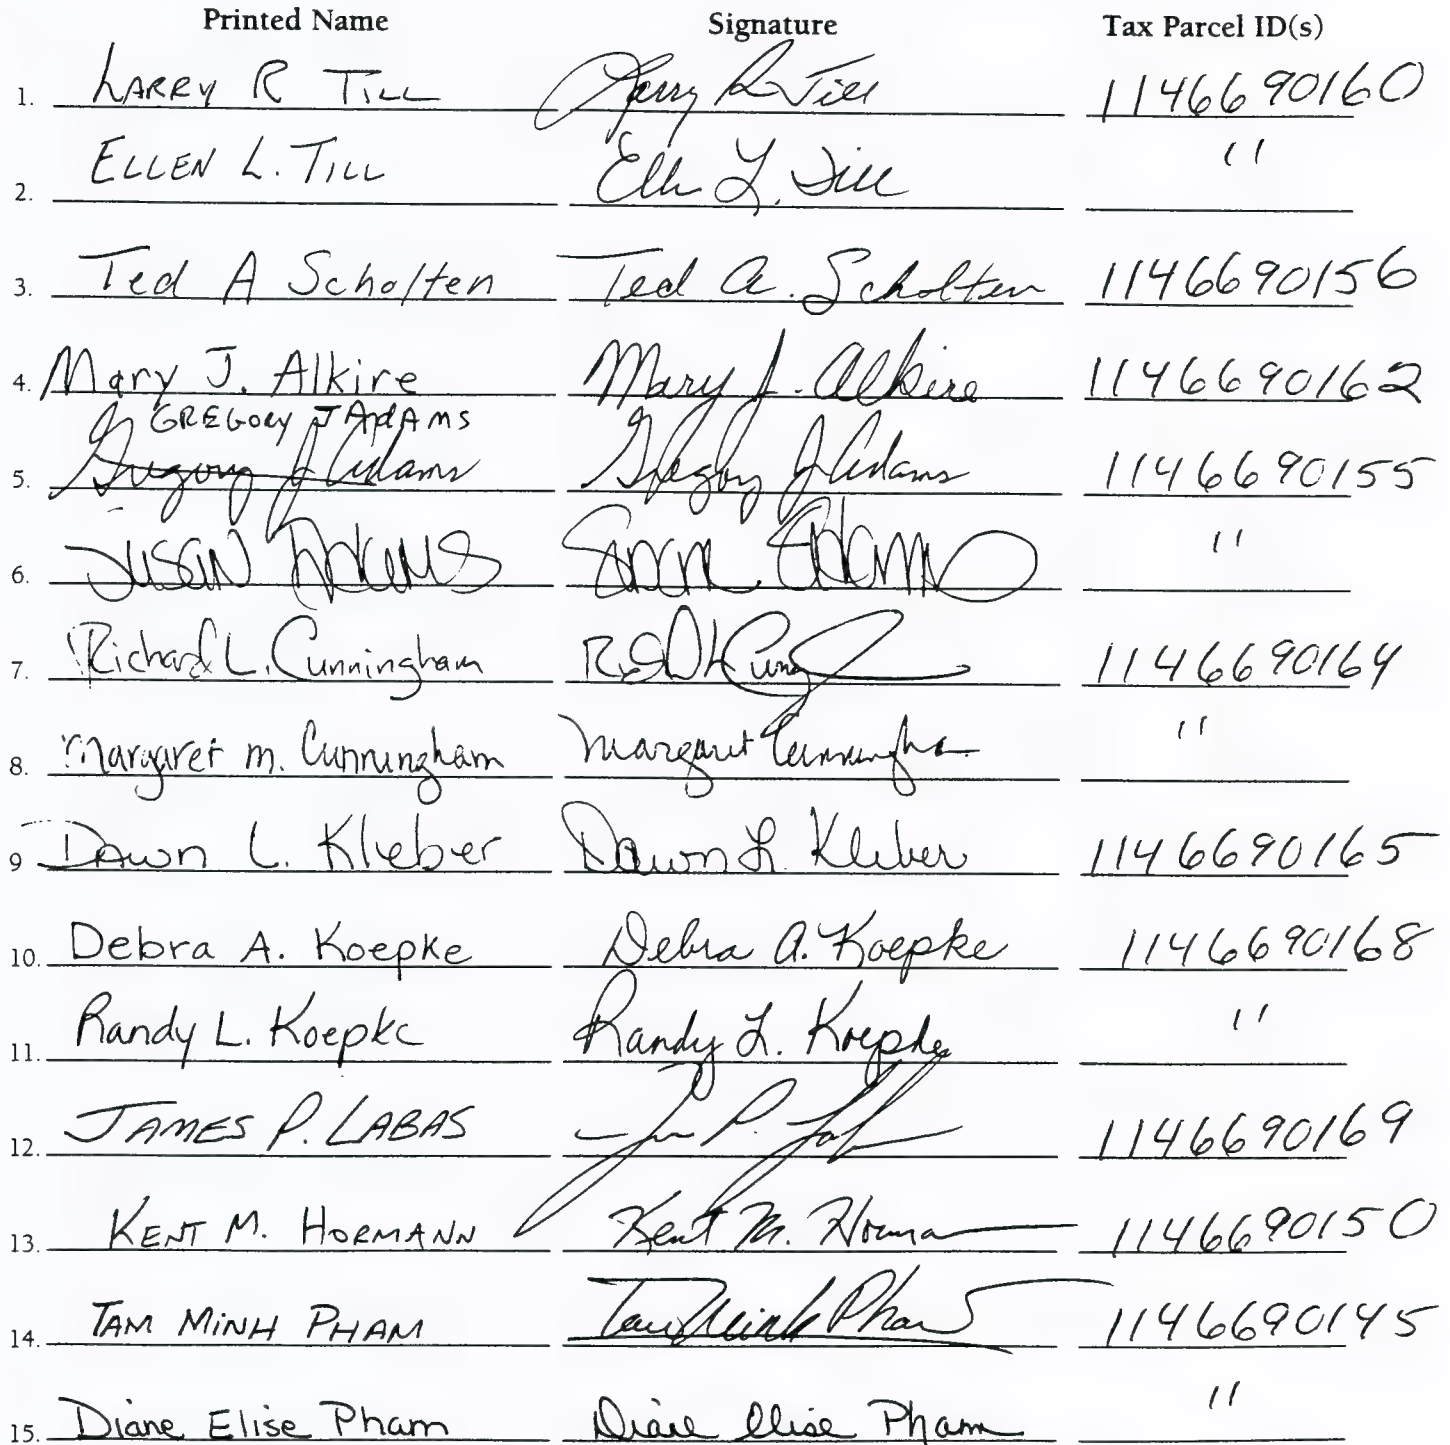 Printed Name Signature Tax Parcel ID(s)
1. LARRY R TILL Larry R Till 1146690160
2. ELLEN L. TILL Ellen L. Till "
3. Ted A Scholten Ted A. Scholten 1146690156
4. Mary J. Alkire Mary J. Alkire 1146690162
GREGORY J ADAMS
5. Gregory J Adams Gregory J Adams 1146690155
6. SUSAN ADAMS Susan Adams "
7. Richard L. Cunningham 1146690164
8. Margaret M. Cunningham Margaret Cunningham "
9 Dawn L. Kleber Dawn L. Kleber 1146690165
10. Debra A. Koepke Debra A. Koepke 1146690168
11. Randy L. Koepke Randy L. Koepke "
12. JAMES P. LABAS 1146690169
13. KENT M. HORMANN Kent M. Hormann 1146690150
14. TAM MINH PHAM Tam Minh Pham 1146690145
15. Diane Elise Pham Diane Elise Pham "